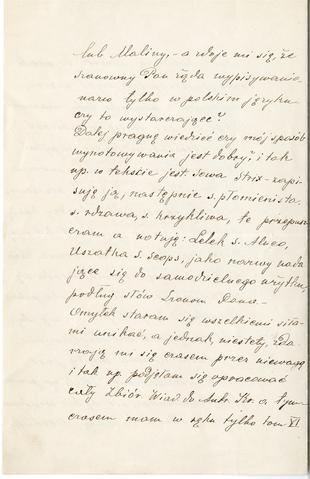 lub Maliny, - a zdaje mi się, że
szanowny Pan żąda wypisywania
nazw tylko w polskim języku
czy to wystarczające?
Dalej pragnę wiedzieć czy mój sposób
wynotowywania jest dobry? i tak
np. w tekście jest Sowa Strix - zapi-
suję ją, następnie s. płomienista,
s. rdzawa, s. krzykliwa, te przepusz-
czam a notuję: Lelek s. Aluco,
Uszatka s. scops, jako nazwy nada-
jące się do samodzielnego użytku,
podług słów Szanow. Pana. -
Omyłek staram się wszelkiemi siła-
mi unikać, a jednak, niestety, zda-
rzają mi się czasem przez nieuwagę
i tak np. podjęłam się opracować
cały Zbiór Wiad. do Antr. Kr. a tym-
czasem mam w ręku tylko tom XI